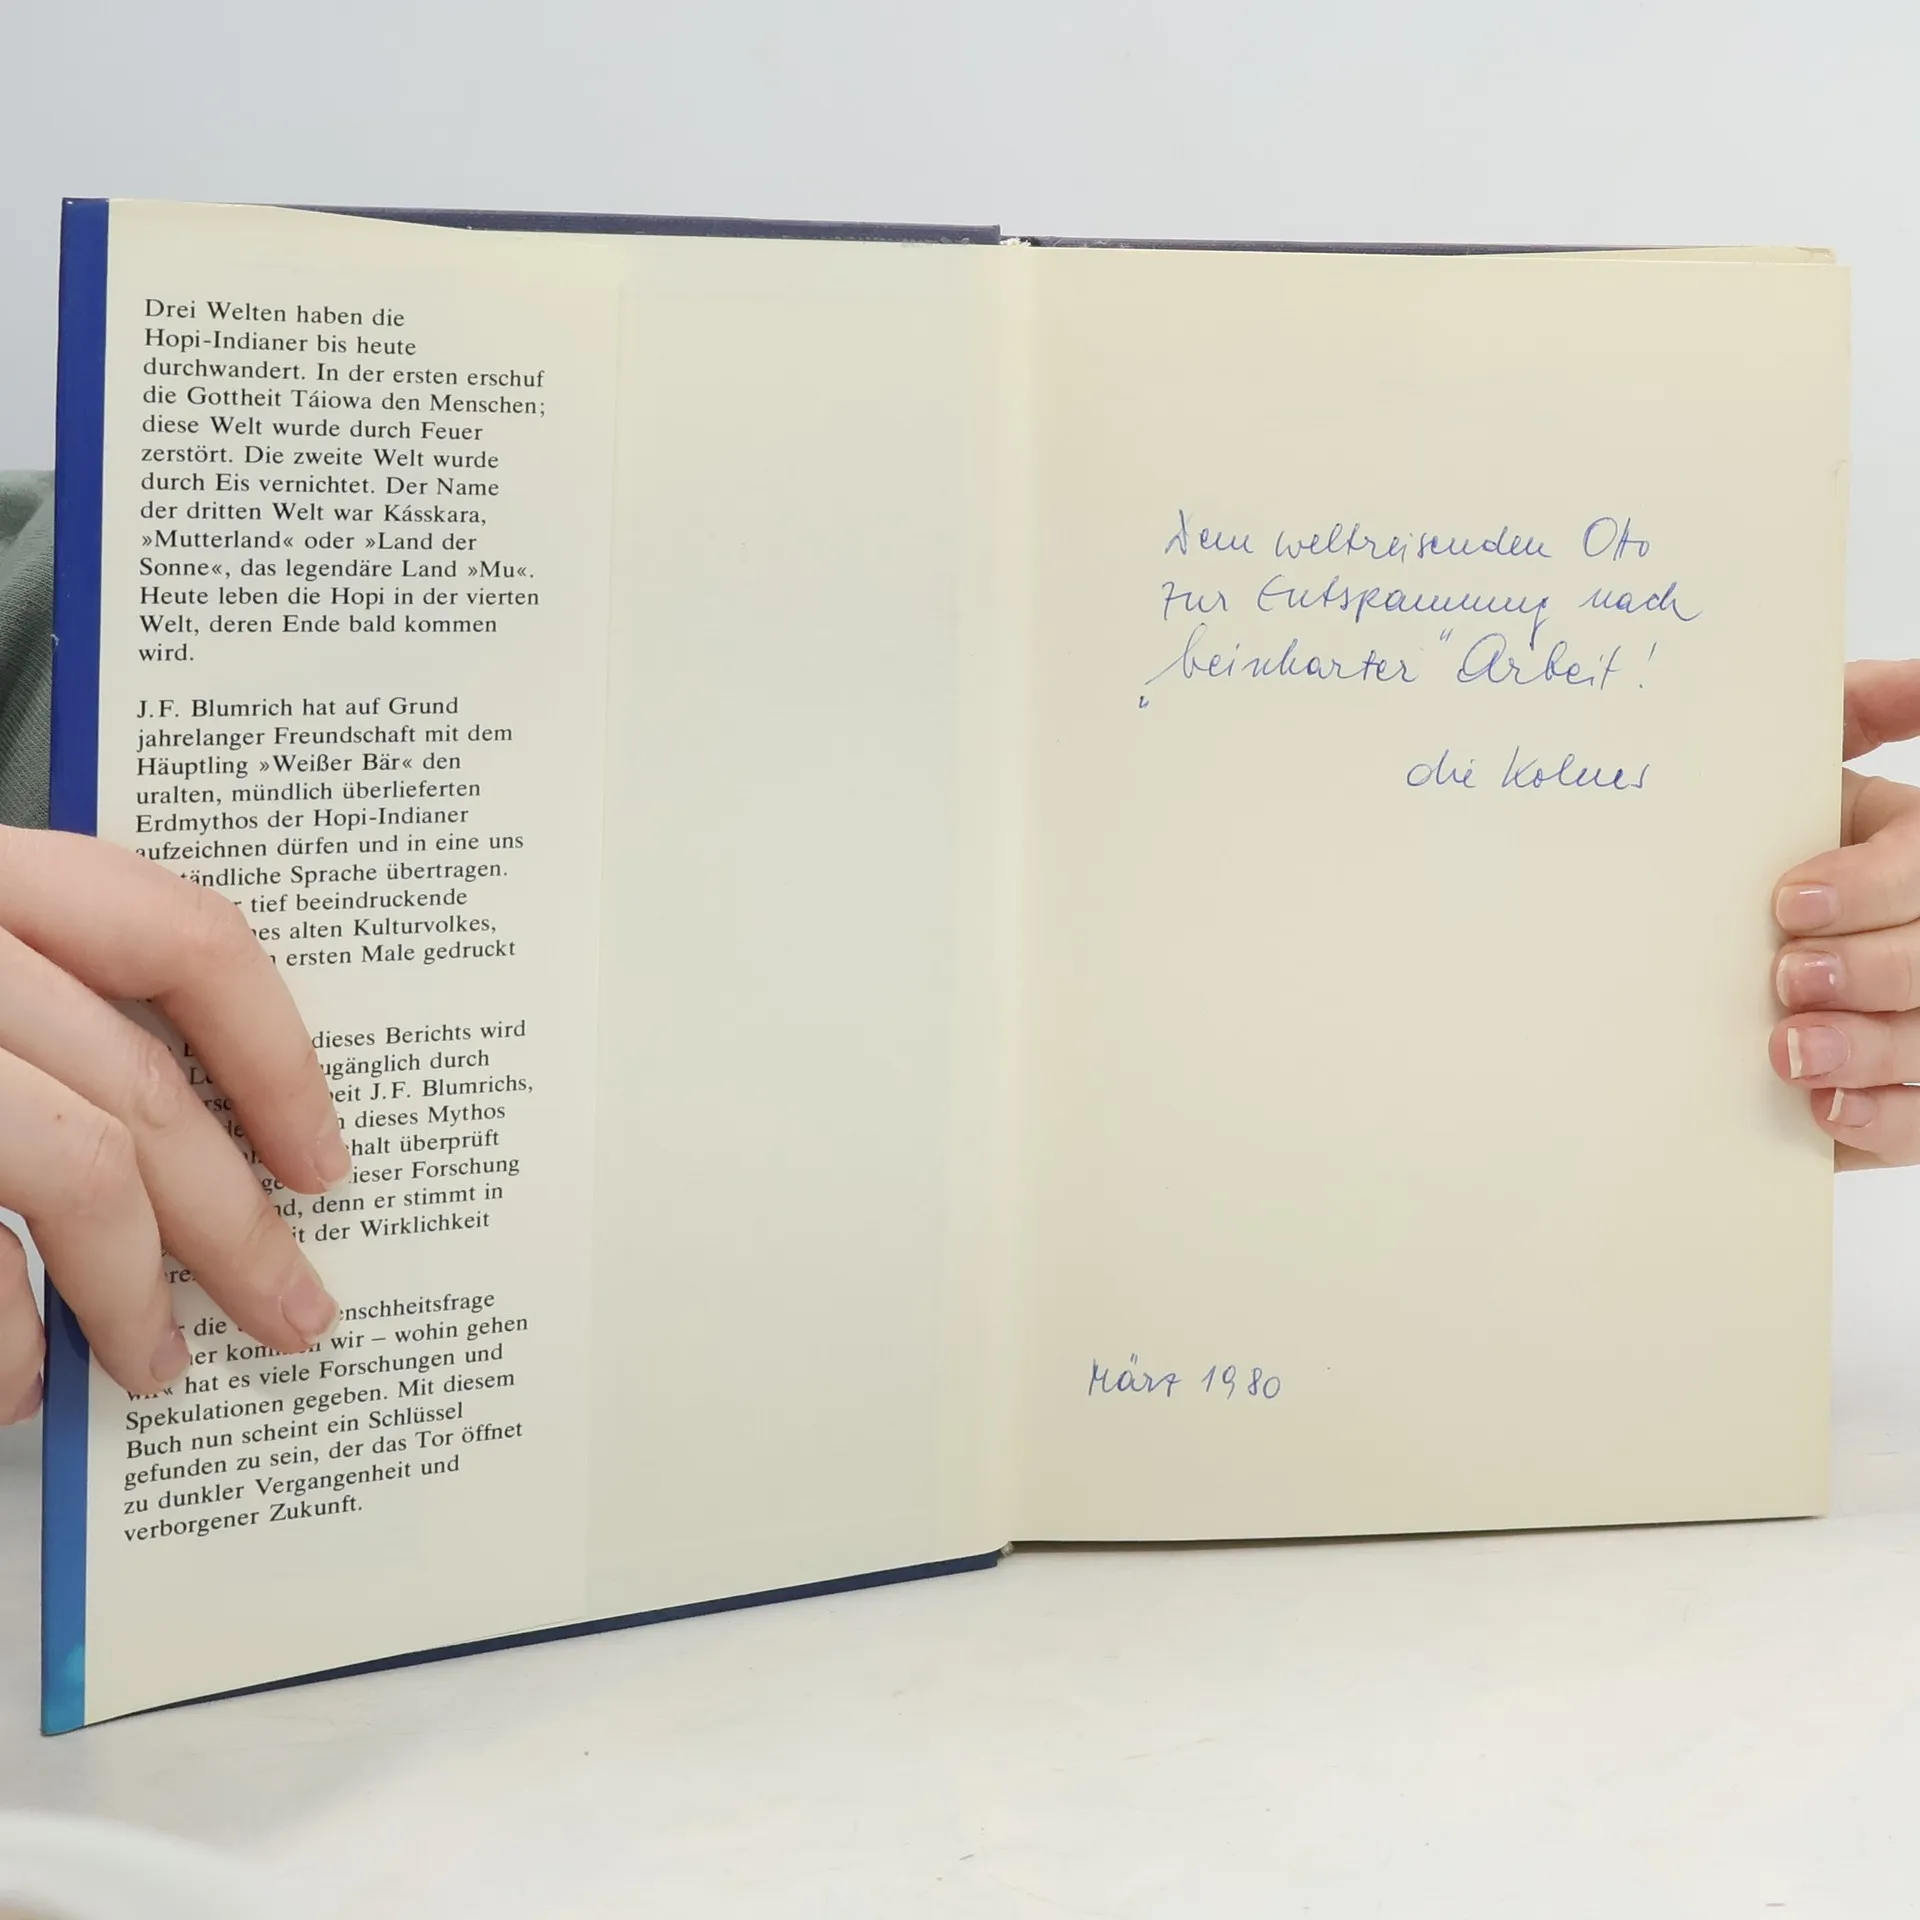 Drei Welten haben die
Hopi-Indianer bis heute
durchwandert. In der ersten erschuf
die Gottheit Táiowa den Menschen;
diese Welt wurde durch Feuer
zerstört. Die zweite Welt wurde
durch Eis vernichtet. Der Name
der dritten Welt war Kásskara,
»Mutterland« oder »Land der
Sonne«, das legendäre Land »Mu«.
Heute leben die Hopi in der vierten
Welt, deren Ende bald kommen
wird.
J.F. Blumrich hat auf Grund
jahrelanger Freundschaft mit dem
Häuptling »Weißer Bär« den
uralten, mündlich überlieferten
Erdmythos der Hopi-Indianer
aufzeichnen dürfen und in eine uns
tändliche Sprache übertragen.
tief beeindruckende
es alten Kulturvolkes,
ersten Male gedruckt
dieses Berichts wird
ugänglich durch
eit J.F. Blumrichs,
dieses Mythos
halt überprüft
ieser Forschung
nd, denn er stimmt in
it der Wirklichkeit
die enschheitsfrage
her kommen wir – wohin gehen
hat es viele Forschungen und
Spekulationen gegeben. Mit diesem
Buch nun scheint ein Schlüssel
gefunden zu sein, der das Tor öffnet
zu dunkler Vergangenheit und
verborgener Zukunft.
Dem weltreisenden Otto
zur Entspannung nach
„beinharter" Arbeit!
die
März 1980